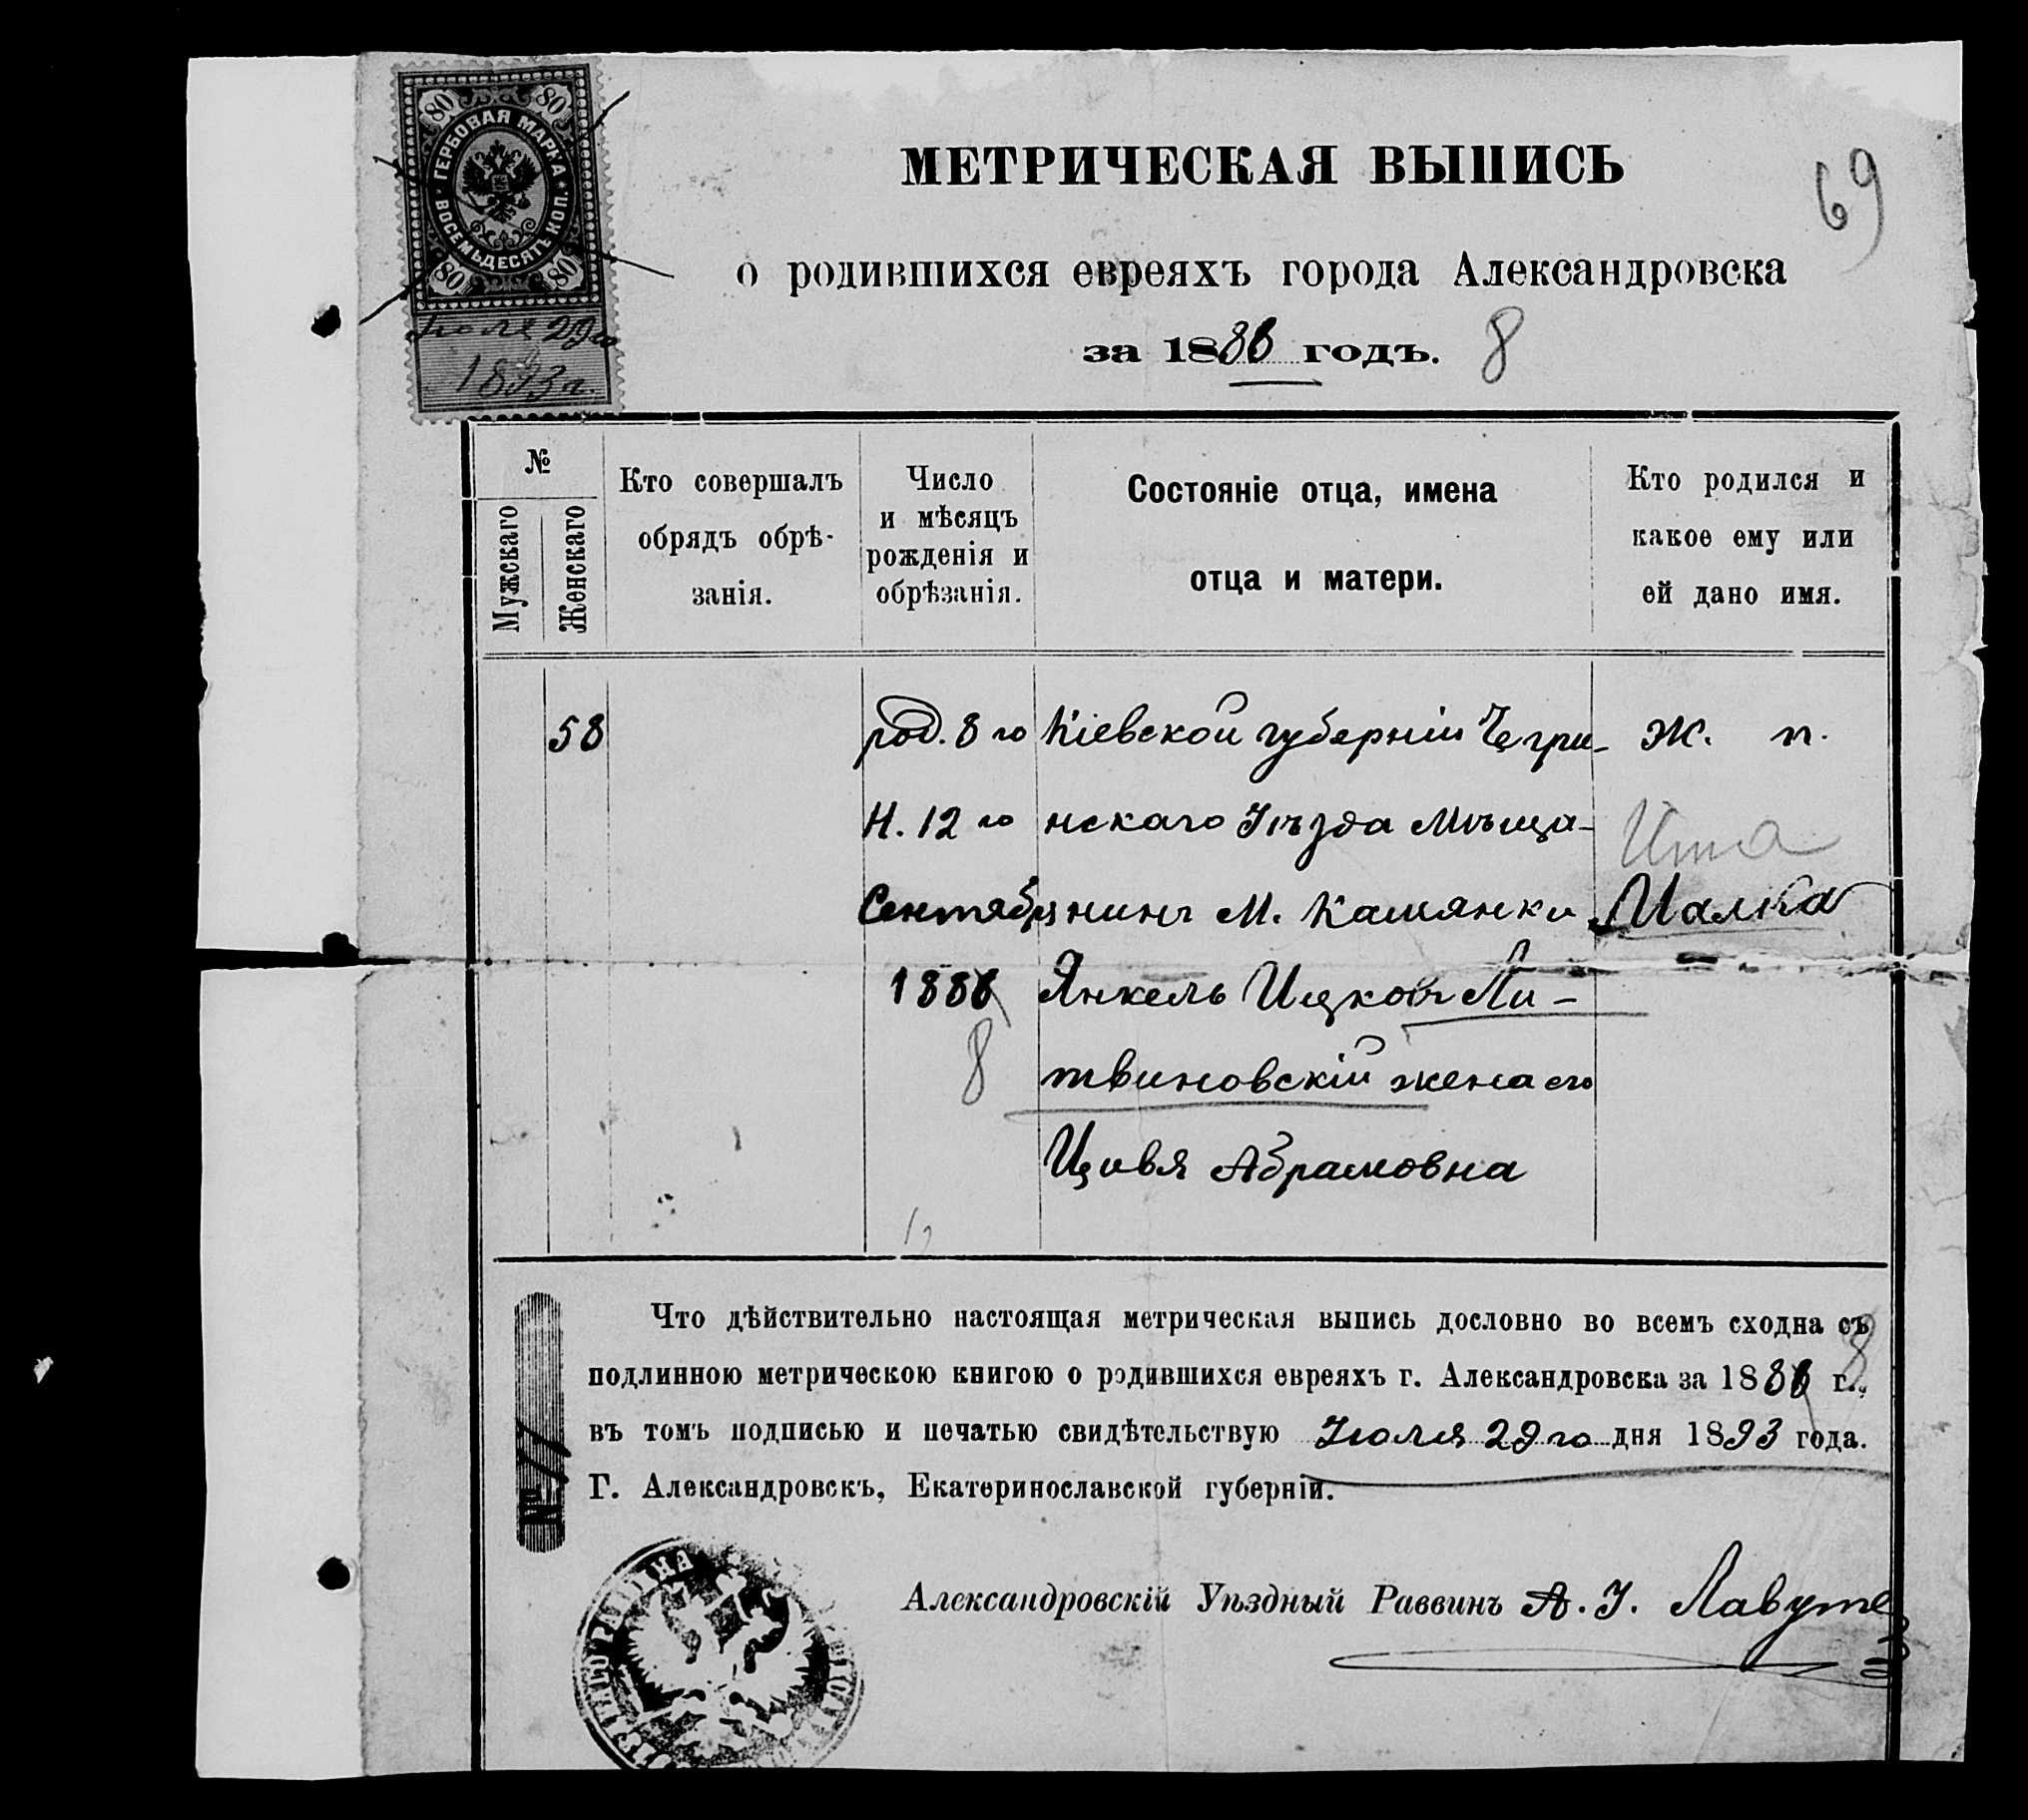 ГЕРБОВАЯ МАРКА
ВОСЕМЬДЕСЯТЪ КОП.
80 80
80 80
Іюля 29го
1893 г.
69
МЕТРИЧЕСКАЯ ВЫПИСЬ
о родившихся евреяхъ города Александровска
за 1888 годъ. 8
№
Мужскаго
Женскаго
Кто совершалъ
обрядъ обрѣ-
занія.
Число
и мѣсяцъ
рожденія и
обрѣзанія.
Состояніе отца, имена
отца и матери.
Кто родился и
какое ему или
ей дано имя.
58
род. 8 го
Н. 12 го
Сентября
1888
8
Кіевской губерніи Чегри-
нскаго Уѣзда Мѣща-
нинъ М. Камянки
Янкель Ицковъ Ли-
твиновскій жена его
Цивя Абрамовна
Ж. п.
Ита
Малка
Что дѣйствительно настоящая метрическая выпись дословно во всемъ сходна съ
подлинною метрическою книгою о родившихся евреяхъ г. Александровска за 1888 г., 8
въ томъ подписью и печатью свидѣтельствую Іюля 29 го дня 1893 года.
Г. Александровскъ, Екатеринославской губерніи.
№ 11
Александровскій Уѣздный Раввинъ А. І. Лавут